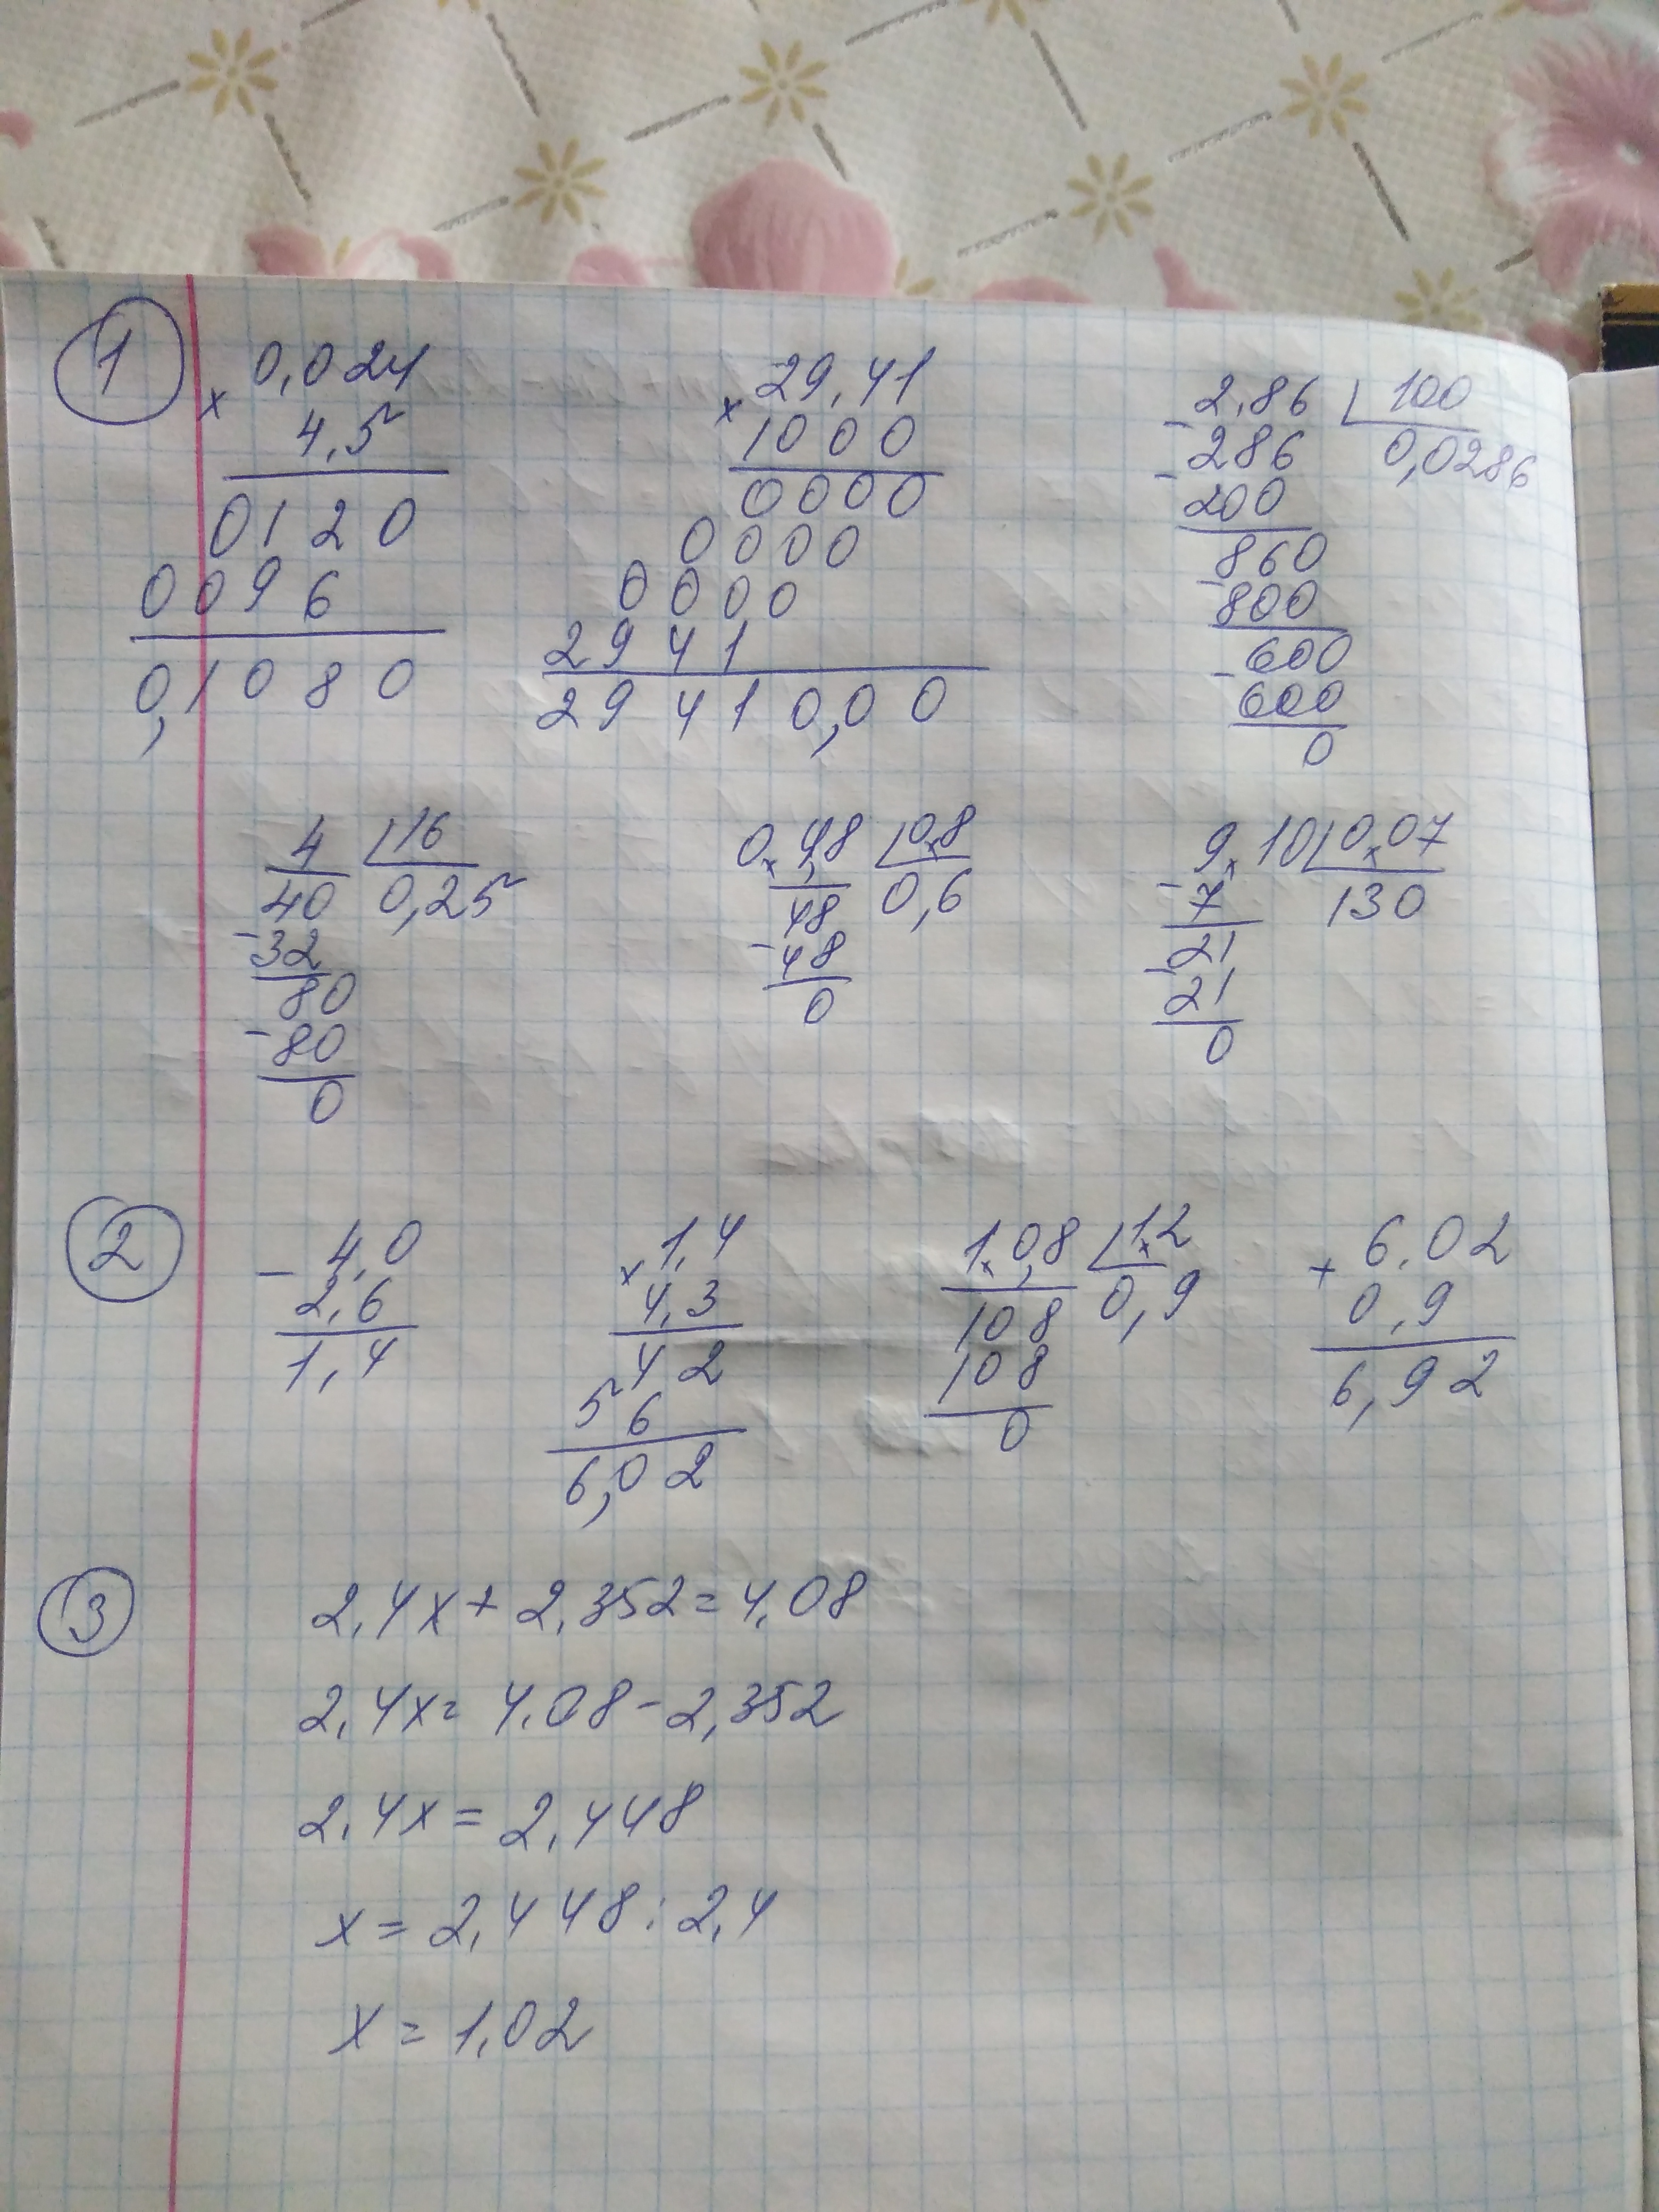 1
0,024
× 4,5
0120
0096
0,1080
29,41
× 1000
0000
0000
0000
2941
29410,00
2,86 100
286 0,0286
- 200
860
- 800
600
- 600
0
4 16
40 0,25
- 32
80
- 80
0
0,48 0,8
48 0,6
- 48
0
9,10 0,07
- 7 130
21
- 21
0
2
- 4,0
2,6
1,4
× 1,4
4,3
42
56
6,02
1,0,8 1,2
108 0,9
108
0
+ 6,02
0,9
6,92
3
2,4x + 2,352 = 4,08
2,4x = 4,08 - 2,352
2,4x = 2,448
x = 2,448 : 2,4
x = 1,02